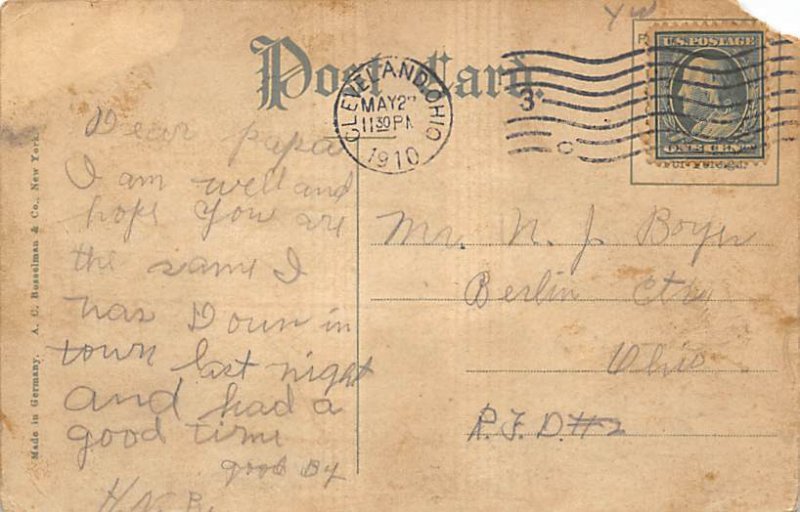 YW
Post Card
U.S. POSTAGE
ONE CENT
CLEVELAND, OHIO
MAY 2
11 30 PM
1910
3
Dear papa
I am well and
hope you are
the same I
was Down in
town last night
and had a
good time
good By
H.N.B.
Mr. N. J. Boyer
Berlin Ctr
Ohio
R.F.D. #2
Made in Germany. A. C. Bosselman & Co., New York